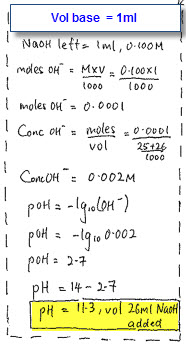 Vol base = 1ml
NaOH left = 1ml, 0.100M
moles OH⁻ = MxV/1000 = 0.100x1/1000
moles OH⁻ = 0.0001
Conc OH⁻ = moles/vol = 0.0001/(25+26/1000)
Conc OH⁻ = 0.002M
pOH = -lg₁₀(OH⁻)
pOH = -lg₁₀ 0.002
pOH = 2.7
pH = 14 - 2.7
pH = 11.3, vol 26ml NaOH
added